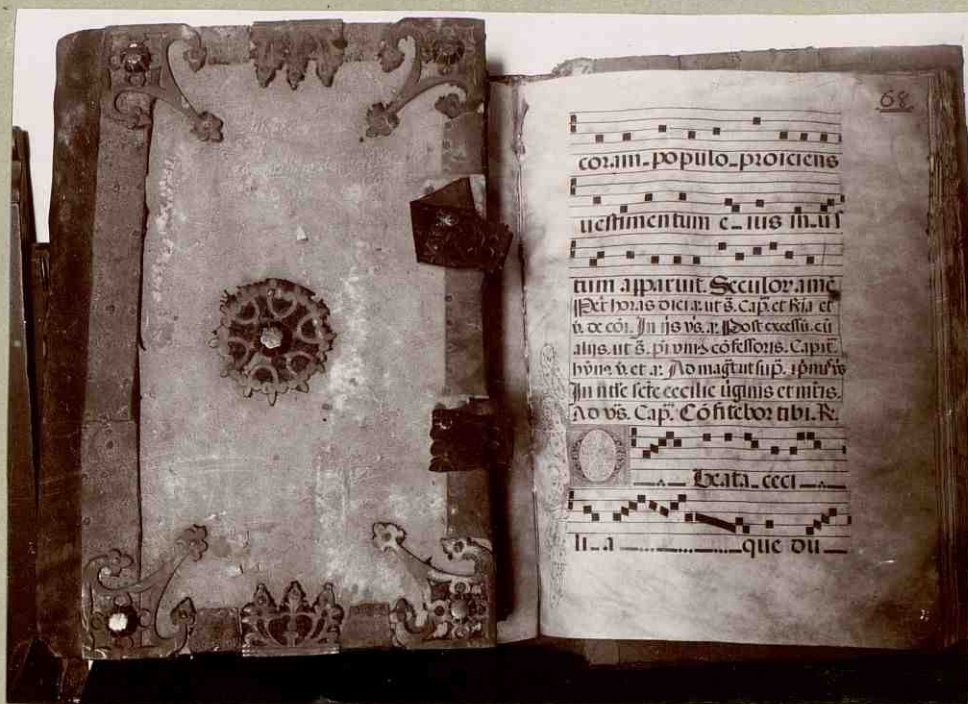 68
coram populo proiciens
uestimentum e_ius in_us
tum apparuit. Seculor. amē
Per horas diei a. ut s̄. Cap. et Ria et
v. de cōi. In ijs vs̄. a. Post excessū. cū
alijs. ut s̄. Capit.
et a. Ad magt̄. ut sup̄.
In scte cecilie uginis et mr̄is.
Ad vs̄. Cap. Cōfitebor tibi. R.
O beata ceci
li_a que du